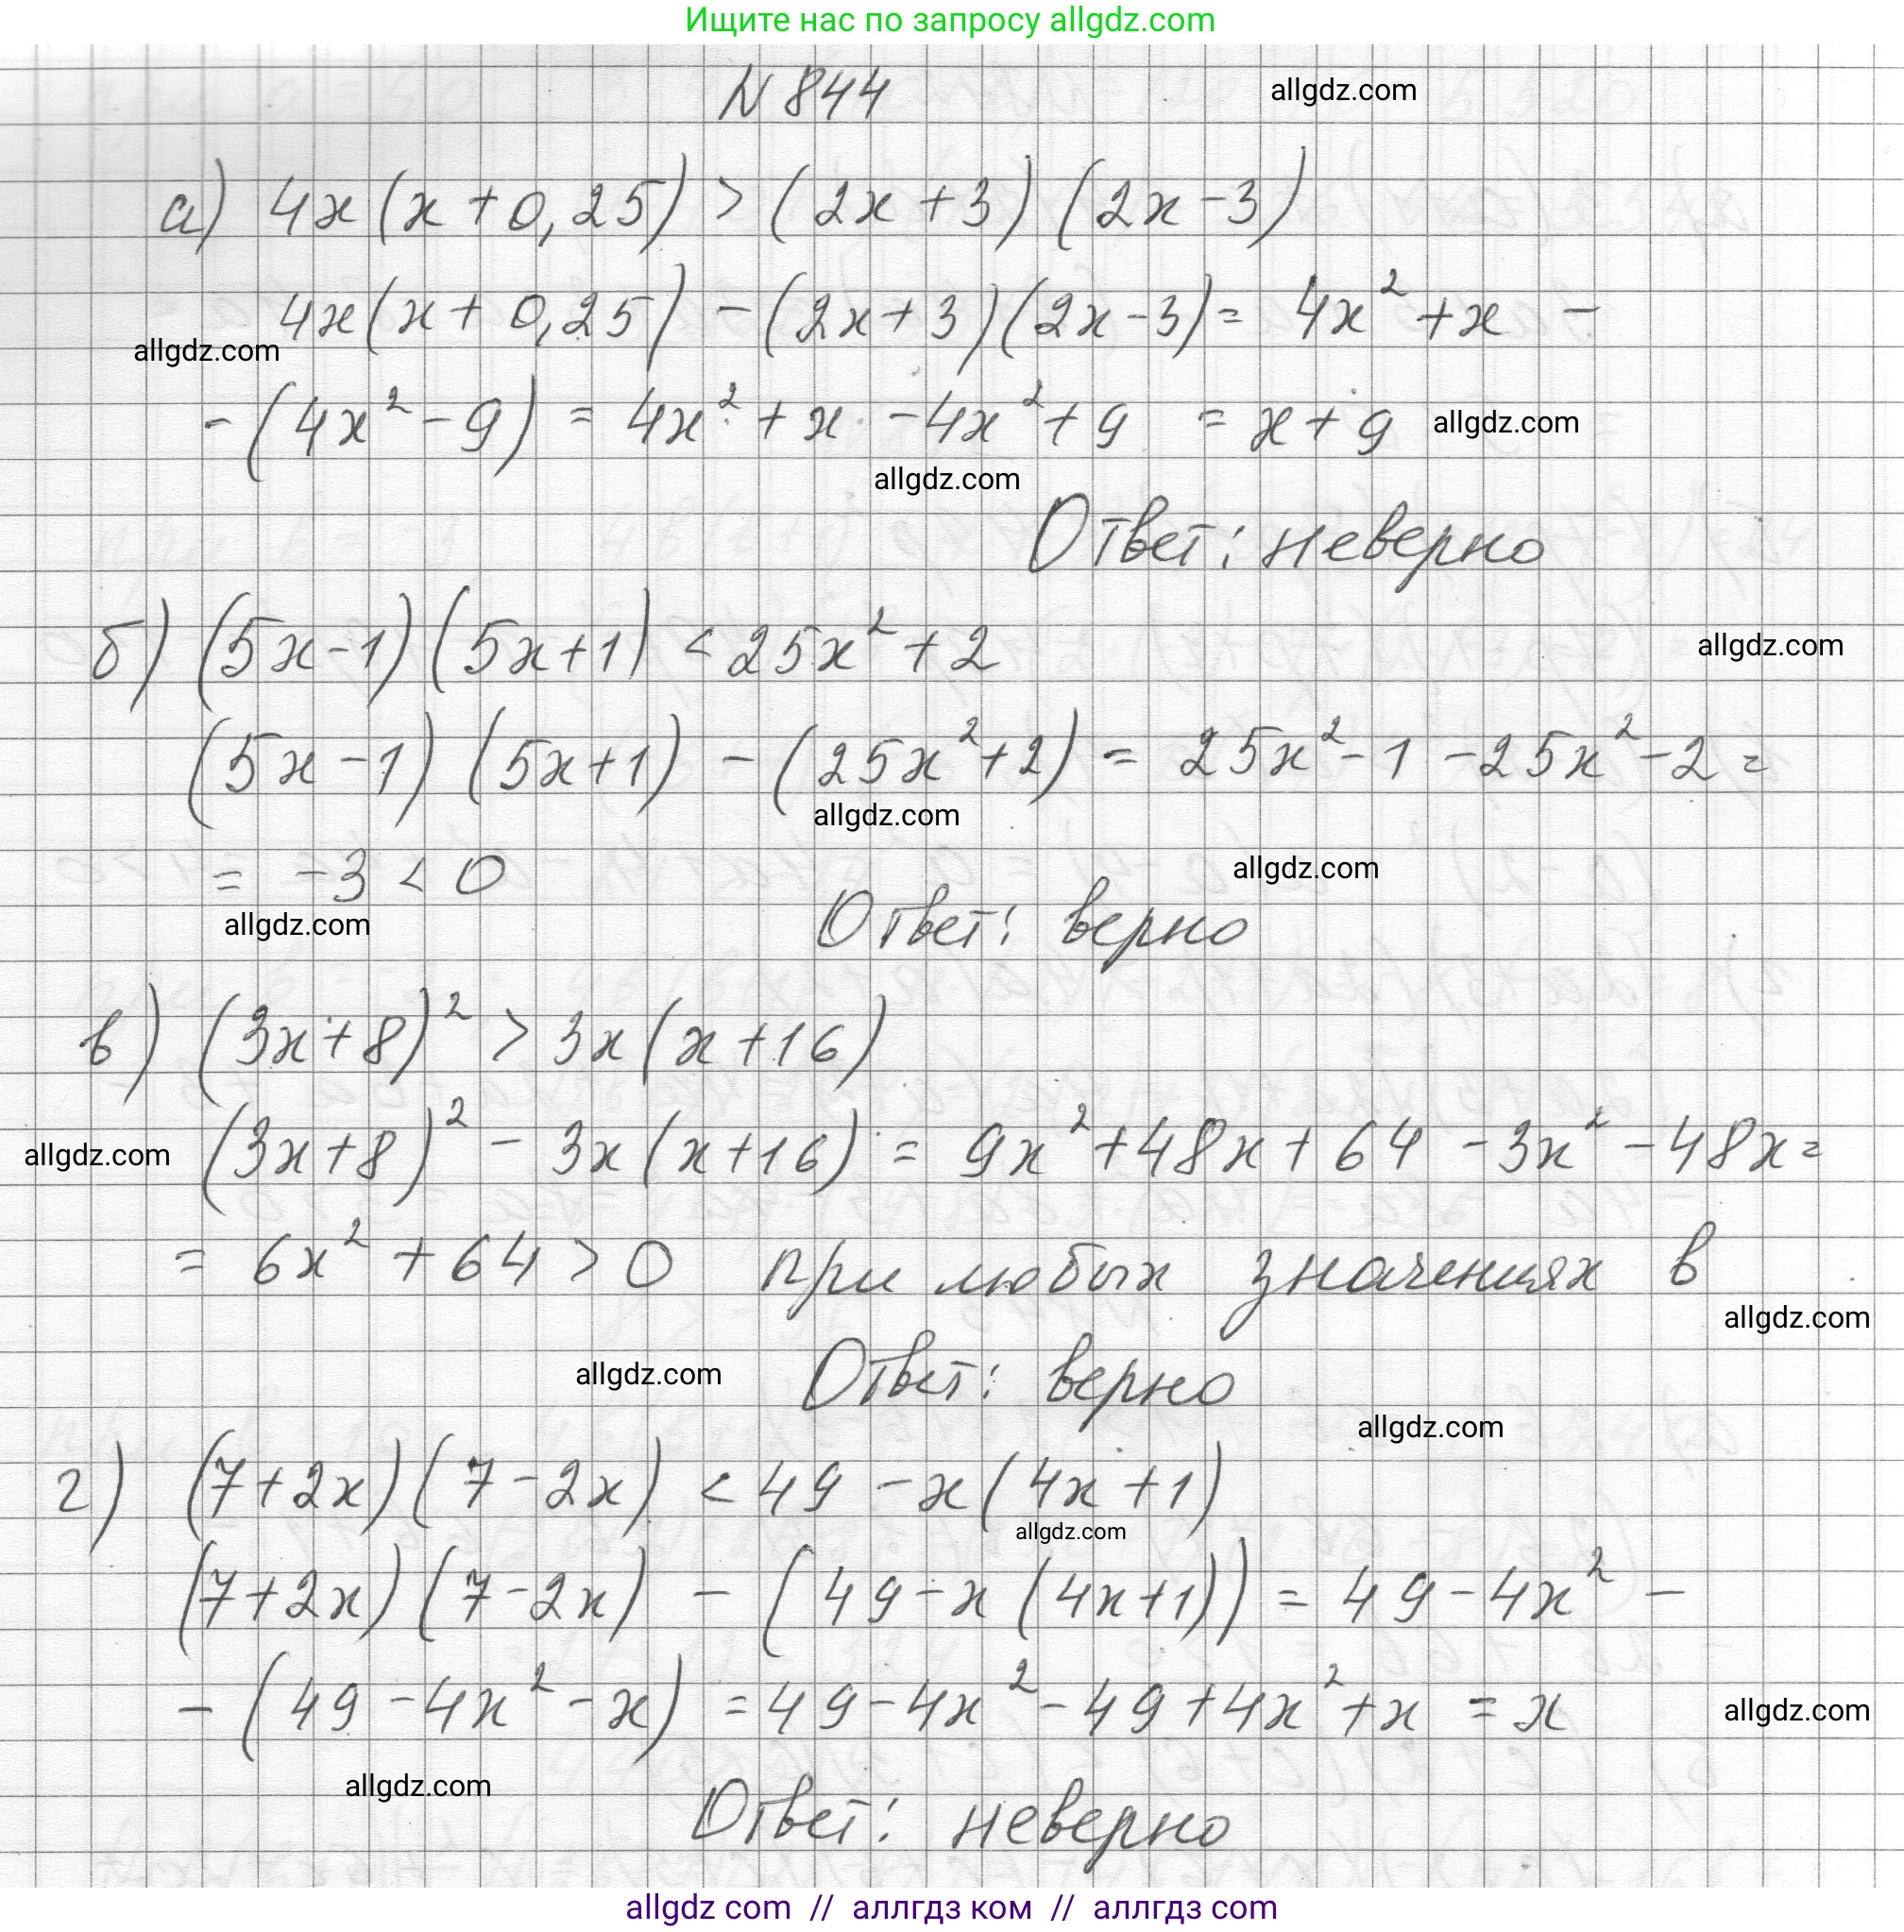 Ищите нас по запросу allgdz.com
N 844
allgdz.com
а) 4x(x+0,25) > (2x+3)(2x-3)
4x(x+0,25) - (2x+3)(2x-3) = 4x² + x -
allgdz.com
- (4x² - 9) = 4x² + x - 4x² + 9 = x + 9
allgdz.com
allgdz.com
Ответ: неверно
б) (5x-1)(5x+1) < 25x² + 2
allgdz.com
(5x-1)(5x+1) - (25x²+2) = 25x² - 1 - 25x² - 2 =
allgdz.com
= -3 < 0
allgdz.com
allgdz.com
Ответ: верно
в) (3x+8)² > 3x(x+16)
allgdz.com
(3x+8)² - 3x(x+16) = 9x² + 48x + 64 - 3x² - 48x =
= 6x² + 64 > 0 при любых значениях в
allgdz.com
allgdz.com
Ответ: верно
allgdz.com
г) (7+2x)(7-2x) < 49 - x(4x+1)
allgdz.com
(7+2x)(7-2x) - (49-x(4x+1)) = 49 - 4x² -
- (49 - 4x² - x) = 49 - 4x² - 49 + 4x² + x = x
allgdz.com
allgdz.com
Ответ: неверно
allgdz com // аллгдз ком // аллгдз com